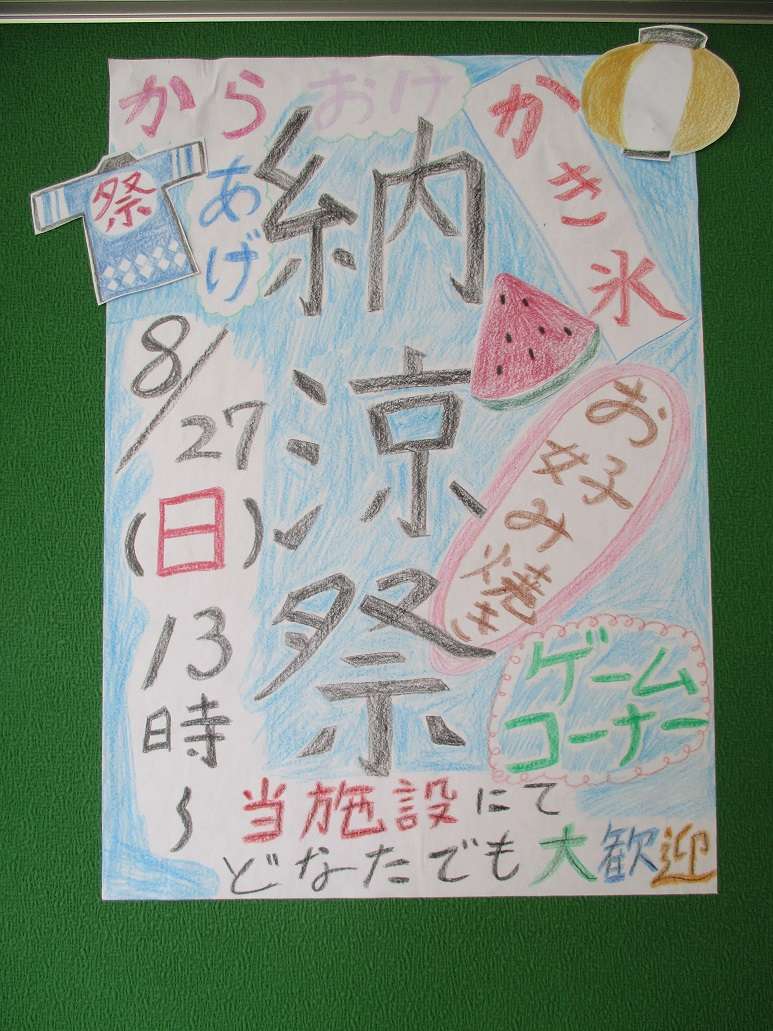 からおけ
からあげ
かき氷
祭
納涼祭
お好み焼き
8/27
(日)
13時~
ゲーム
コーナー
当施設にて
どなたでも大歓迎